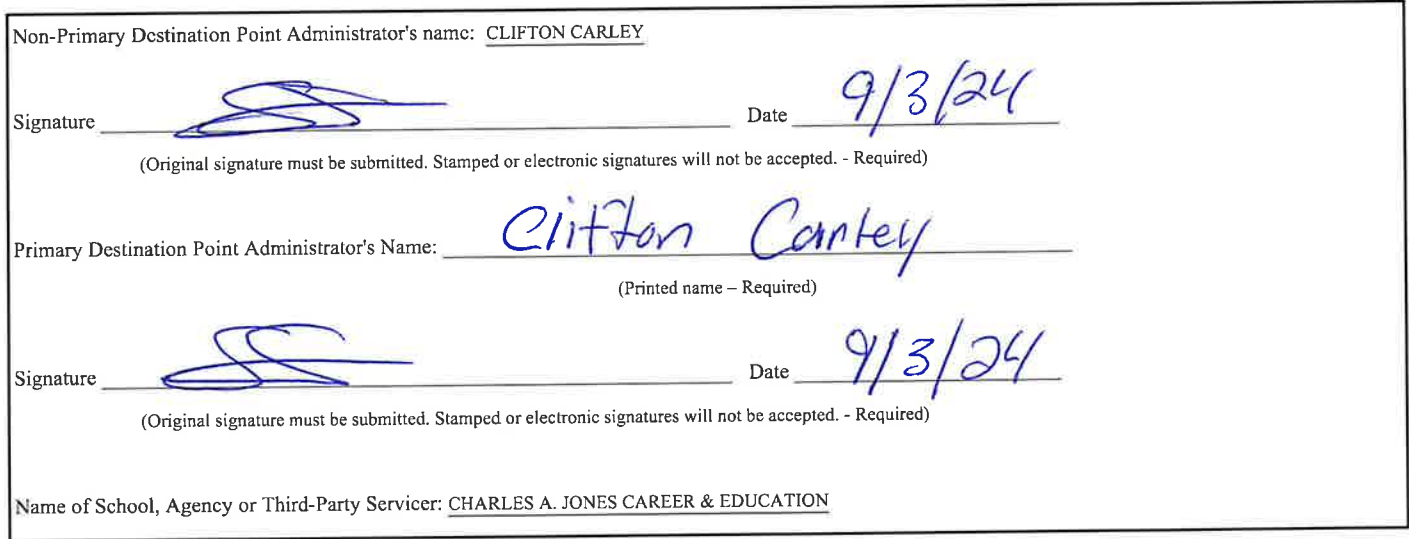 Non-Primary Destination Point Administrator's name: CLIFTON CARLEY
Signature Date 9/3/24
(Original signature must be submitted. Stamped or electronic signatures will not be accepted. - Required)
Primary Destination Point Administrator's Name: Clifton Carley
(Printed name – Required)
Signature Date 9/3/24
(Original signature must be submitted. Stamped or electronic signatures will not be accepted. - Required)
Name of School, Agency or Third-Party Servicer: CHARLES A. JONES CAREER & EDUCATION